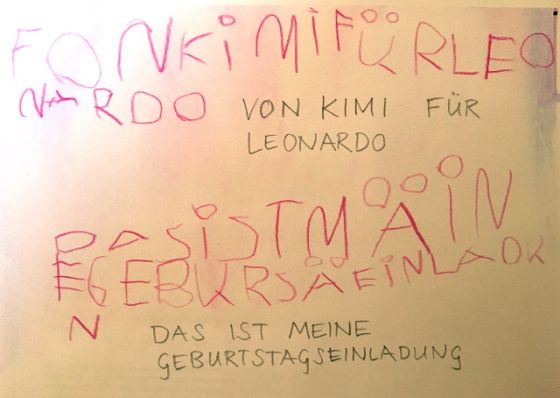 FONKIMIFÜRLEO
NARDO VON KIMI FÜR
LEONARDO
DASISTMÄIN
EGEBURSÄEINLADU
N DAS IST MEINE
GEBURTSTAGSEINLADUNG